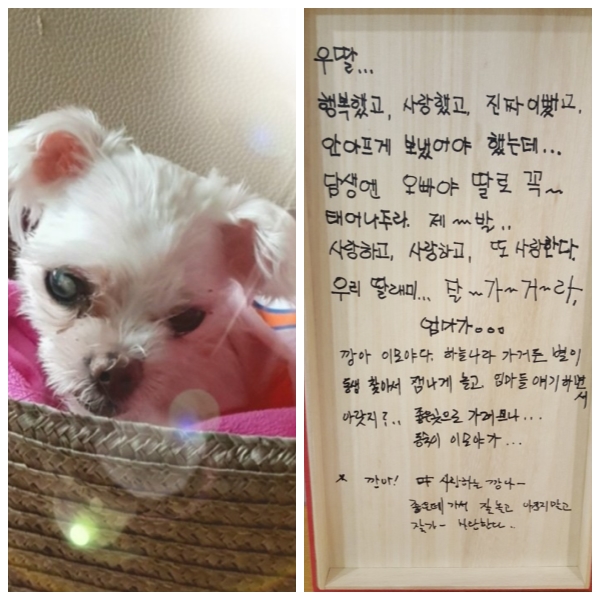 우딸...
행복했고, 사랑했고, 진짜 이뻤고,
안아프게 보냈어야 했는데...
담생엔 오빠야 딸로 꼭~
태어나주라. 제~발..
사랑하고, 사랑하고, 또 사랑한다.
우리 딸래미... 잘~가~거~라,
엄마가ooo
깡아 이모야다. 하늘나라 가거든 별이
동생 찾아서 잼나게 놀고 엄마들 얘기하면서
아랏지?..
좋은곳으로 가려므나...
이모야가...
깐아! 사랑하는 깡아~
좋은데 가서 잘 놀고 아프지말고
잘가~